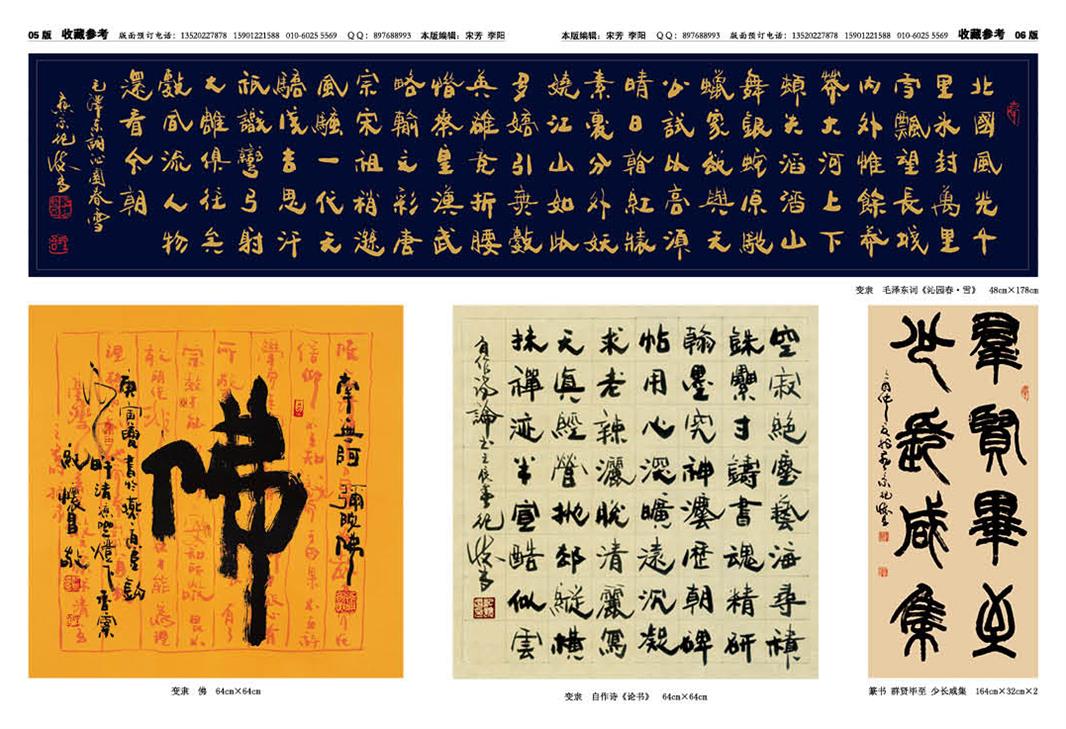 05 版 收藏参考 版面预订电话：13520227878 15901221588 010-6025 5569 QQ：897688993 本版编辑：宋芳 李阳
本版编辑：宋芳 李阳 QQ：897688993 版面预订电话：13520227878 15901221588 010-6025 5569 收藏参考 06 版
北國風光千
里冰封萬里
雪飄望長城
內外惟餘莽
莽大河上下
頓失滔滔山
舞銀蛇原馳
蠟象欲與天
公試比高須
晴日看紅裝
素裹分外妖
嬈江山如此
多嬌引無數
英雄競折腰
惜秦皇漢武
略輸文彩唐
宗宋祖稍遜
風騷一代天
驕成吉思汗
祇識彎弓射
大雕俱往矣
數風流人物
還看今朝
毛澤東詞沁園春雪
变隶 毛泽东词《沁园春·雪》 48cm×178cm
南無阿彌陀佛
佛
变隶 佛 64cm×64cm
空寂絕塵藝海尋積
銖纍寸鑄書魂精研
翰墨究神歷朝碑
帖用心深曠遠沉凝
求老辣灑脫清麗寫
天真經營挑卻縱橫
抹禪迹半宣酷似雲
自作詩論書
变隶 自作诗《论书》 64cm×64cm
羣賢畢至
少長咸集
篆书 群贤毕至 少长咸集 164cm×32cm×2